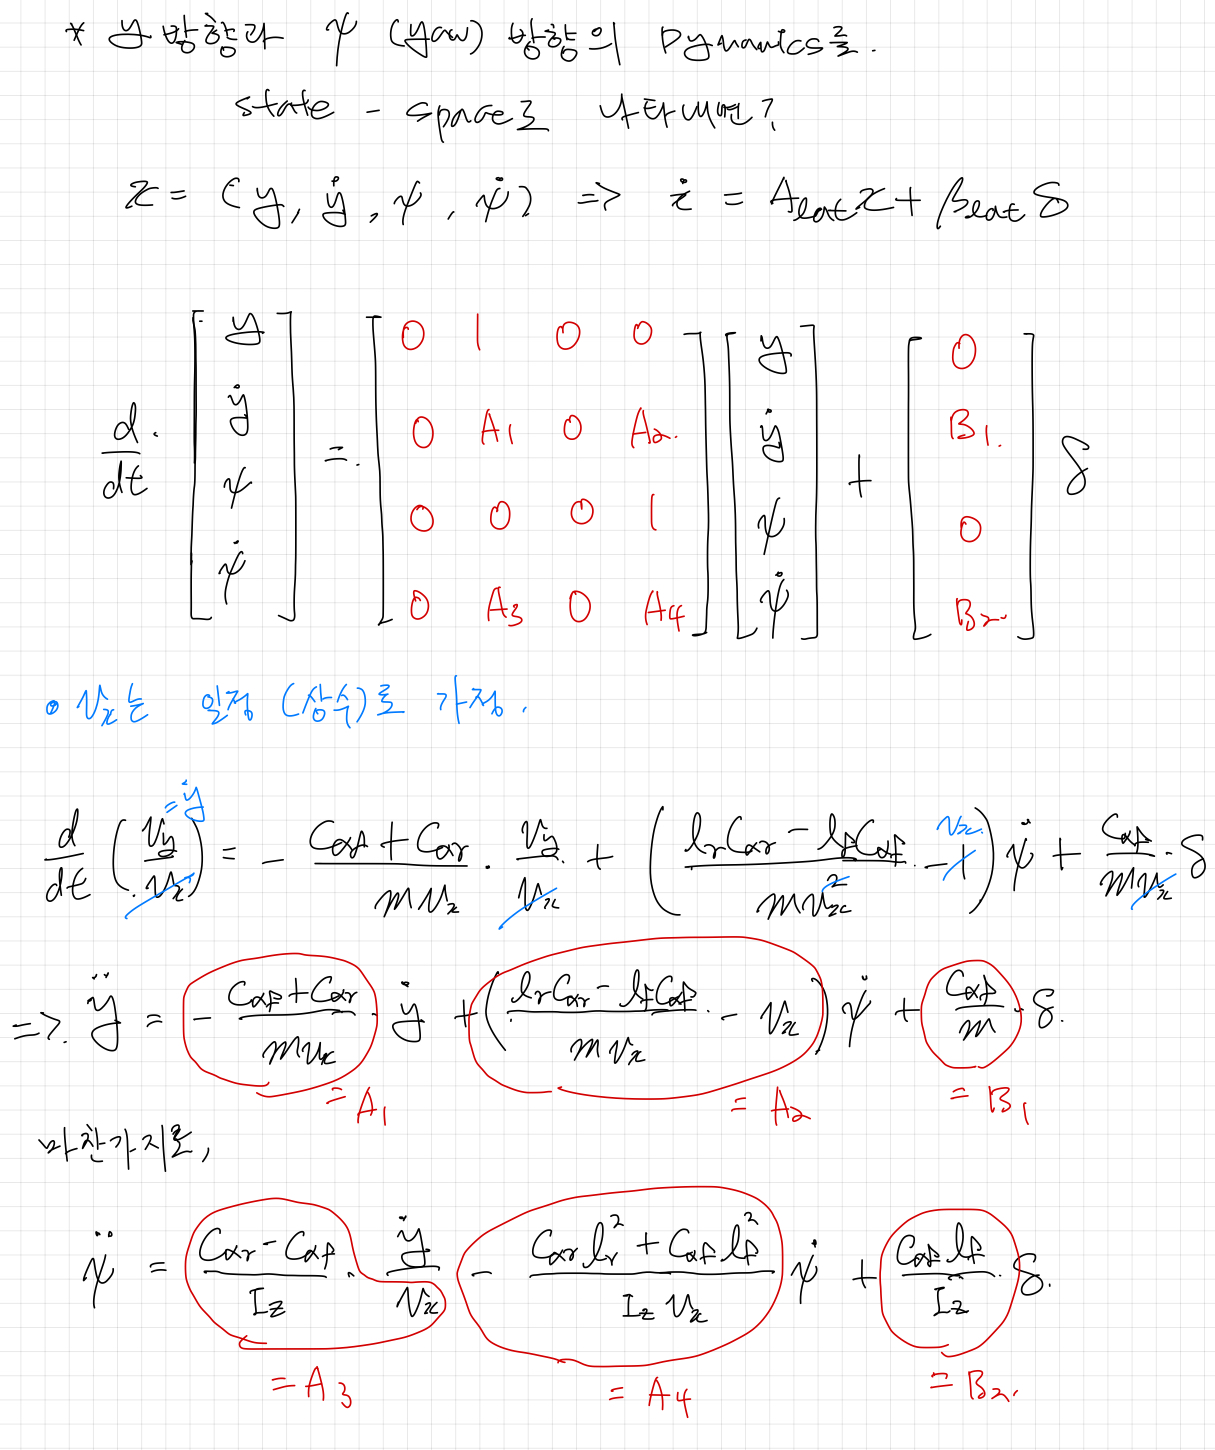 * y 방향과 ψ (yaw) 방향의 Dynamics를.
state - space로 나타내면?
x = (y, ẏ, ψ, ψ̇) => ẋ = A_lat x + B_lat δ
d/dt [y ẏ ψ ψ̇] = [0 1 0 0; 0 A₁ 0 A₂; 0 0 0 1; 0 A₃ 0 A₄] [y ẏ ψ ψ̇] + [0 B₁ 0 B₂] δ
• v_x는 일정 (상수)로 가정.
= ẏ
d/dt (v_y/v_x) = - (C_αf + C_αr)/(m v_x) · v_y/v_x + ((l_r C_αr - l_f C_αf)/(m v_x²) - 1) ψ̇ + C_αf/(m v_x) · δ
v_x
=> ÿ = - (C_αf + C_αr)/(m v_x) · ẏ + ((l_r C_αr - l_f C_αf)/(m v_x) - v_x) ψ̇ + C_αf/m · δ.
= A₁ = A₂ = B₁
마찬가지로,
ψ̈ = (C_αr - C_αf)/I_z · ẏ/v_x - (C_αr l_r² + C_αf l_f²)/(I_z v_x) ψ̇ + (C_αf l_f)/I_z · δ.
= A₃ = A₄ = B₂.